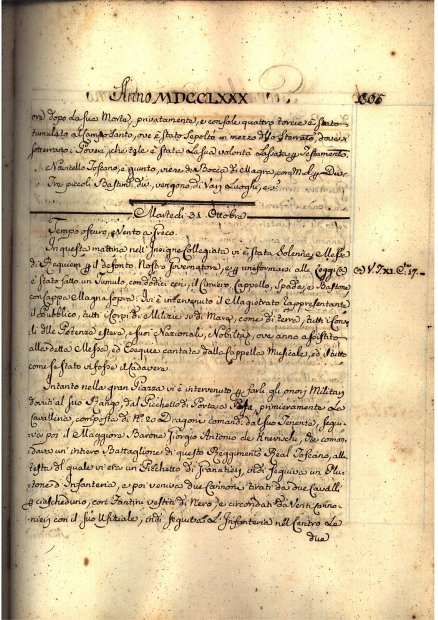 Anno MDCCLXXX 806
ore dopo la sua Morte, privatamente, e con sole quattro torcie è stato
tumulato al Campo Santo, ove è stato sepolto in mezzo dello sterrato, dove i
poveri, che tale è stata la sua volontà lasciata per Testamento
Navicello Toscano, e quinto, viene di Bocca di Magra, con M.
Tre piccoli Bastim: div: vengono di Varj Luoghi, e
Martedì 31. Ottobre
Tempo oscuro, e Vento a Greco.
In questa mattina nell' Insigne Collegiata vi è stata Solenne Messa
di Requiem per il defonto Nostro Governatore, e per uniformarsi alle Leggi (a) (a) V. T. XI. C. 17.
è stato fatto un Tumulo, con sopra il Cimiero, Cappello, Spada, e Bastone
con Cappa Magna sopra: Vi è intervenuto il Magistrato rappresentante
il Pubblico, tutti i Corpi di Milizie sì di Mare, come di terra, tutti i Con-
li delle Potenze estere, e fuori Nazionali, Nobiltà, ove anno assistito
alla detta Messa, ed Esequie cantate dalla Cappella Musicale, ed il tutto
come se stato vi fosse il Cadavere.
Intanto nella gran Piazza vi è intervenuto per farli gli onori Militari
dovuti al suo Rango, dal Picchetto di Porta a Pisa, primieramente la
Cavalleria, composta di N.o 20 Dragoni comand: dal suo Tenente, segui-
va poi il Maggiore Barone Giorgio Antonio de che coman-
dava un' intiero Battaglione di questo Reggimento Real Toscano, alla
testa del quale vi era un Picchetto di Granatieri, indi seguiva un Plu-
tone d' Infanteria, e poi veniva due Cannoni tirati da due Cavalli
per ciascheduno, con Fantini vestiti di Nero, e circondati da Venti Canno-
nieri con il suo Ufiziale, indi seguitava l' Infanteria nel Centro le
due